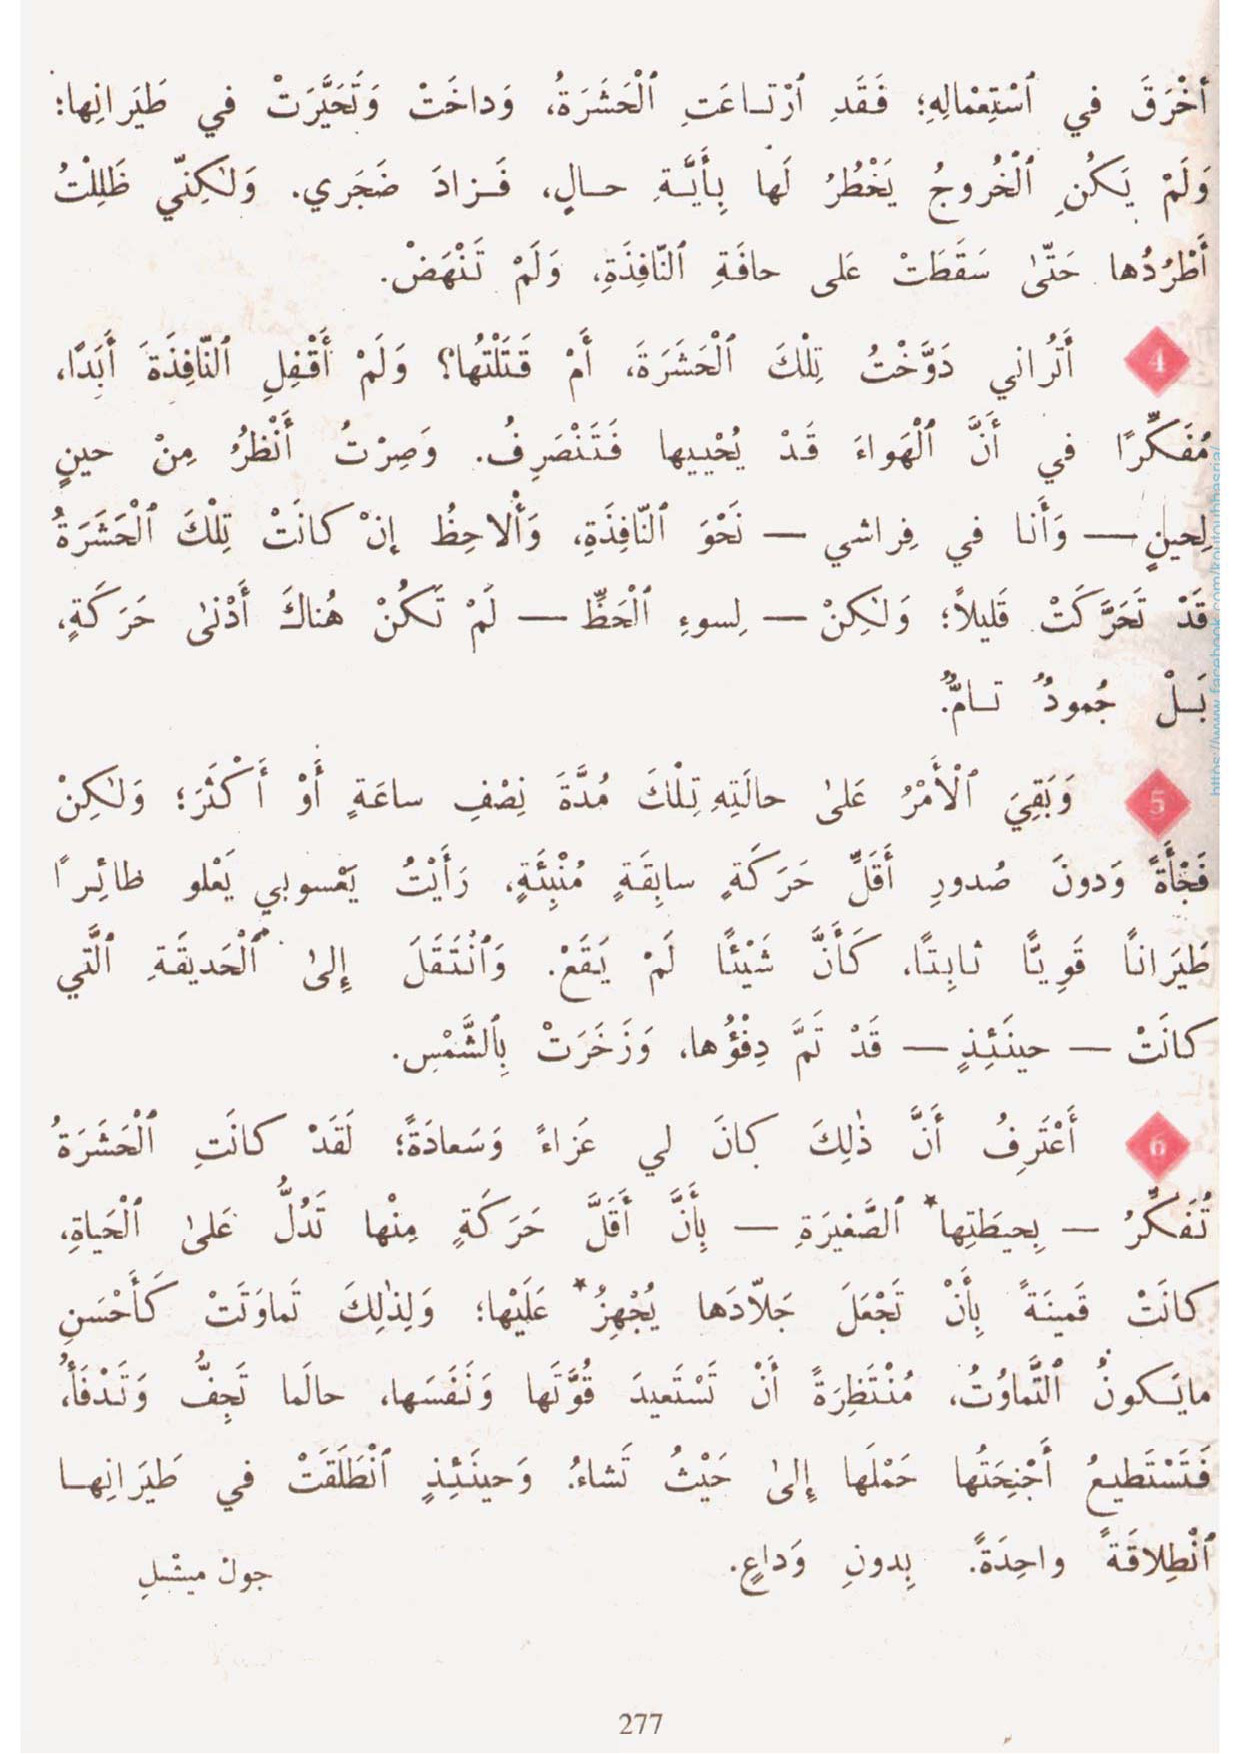 أَخْرَقَ في ٱسْتِعْمالِهِ؛ فَقَدِ ٱرْتـاعَتِ ٱلْحَشَرَةُ، وَداخَتْ وَتَحَيَّرَتْ في طَيَرانِها؛
وَلَمْ يَكُنِ ٱلْخُروجُ يَخْطُرُ لَها بِأَيَّـةِ حـالٍ، فَـزادَ ضَجَري. وَلٰكِنّي ظَلِلْتُ
أَطْرُدُها حَتّىٰ سَقَطَتْ عَلى حافَةِ ٱلنّافِذَةِ، وَلَمْ تَنْهَضْ.
4 أَتُراني دَوَّخْتُ تِلْكَ ٱلْحَشَرَةَ، أَمْ قَتَلْتُها؟ وَلَمْ أَقْفِلِ ٱلنّافِذَةَ أَبَدًا،
مُفَكِّرًا في أَنَّ ٱلْهَواءَ قَدْ يُحْييها فَتَنْصَرِفُ. وَصِرْتُ أَنْظُرُ مِنْ حينٍ
لِحينٍ — وَأَنا في فِراشي — نَحْوَ ٱلنّافِذَةِ، وَأُلاحِظُ إِنْ كانَتْ تِلْكَ ٱلْحَشَرَةُ
قَدْ تَحَرَّكَتْ قَليلاً؛ وَلٰكِنْ — لِسوءِ ٱلْحَظِّ — لَمْ تَكُنْ هُناكَ أَدْنىٰ حَرَكَةٍ،
بَـلْ جُمودٌ تـامٌّ.
5 وَبَقِيَ ٱلْأَمْرُ عَلىٰ حالَتِهِ تِلْكَ مُدَّةَ نِصْفِ ساعَةٍ أَوْ أَكْثَرَ؛ وَلٰكِنْ
فَجْأَةً وَدونَ صُدورِ أَقَلِّ حَرَكَةٍ سابِقَةٍ مُنْبِئَةٍ، رَأَيْتُ يَعْسوبي يَعْلو طائِرًا
طَيَرانًا قَوِيًّا ثابِتًا، كَأَنَّ شَيْئًا لَمْ يَقَعْ. وَٱنْتَقَلَ إِلىٰ ٱلْحَديقَةِ ٱلَّتي
كانَتْ — حينَئِذٍ — قَدْ تَمَّ دِفْؤُها، وَزَخَرَتْ بِٱلشَّمْسِ.
6 أَعْتَرِفُ أَنَّ ذٰلِكَ كانَ لي عَزاءً وَسَعادَةً؛ لَقَدْ كانَتِ ٱلْحَشَرَةُ
تُفَكِّرُ — بِحيطَتِها* ٱلصَّغيرَةِ — بِأَنَّ أَقَلَّ حَرَكَةٍ مِنْها تَدُلُّ عَلىٰ ٱلْحَياةِ،
كانَتْ قَمينَةً بِأَنْ تَجْعَلَ جَلاّدَها يُجْهِزُ* عَلَيْها؛ وَلِذٰلِكَ تَماوَتَتْ كَأَحْسَنِ
مايَـكونُ ٱلتَّماوُتُ، مُنْتَظِرَةً أَنْ تَسْتَعيدَ قُوَّتَها وَنَفَسَها، حالَما تَجِفُّ وَتَدْفَأُ،
فَتَسْتَطيعُ أَجْنِحَتُها حَمْلَها إِلىٰ حَيْثُ تَشاءُ. وَحينَئِذٍ ٱنْطَلَقَتْ في طَيَرانِهـا
ٱنْطِلاقَةً واحِدَةً. بِدونِ وَداعٍ.
جولْ ميشْلِ
277
https://www.facebook.com/koutoubhasria/